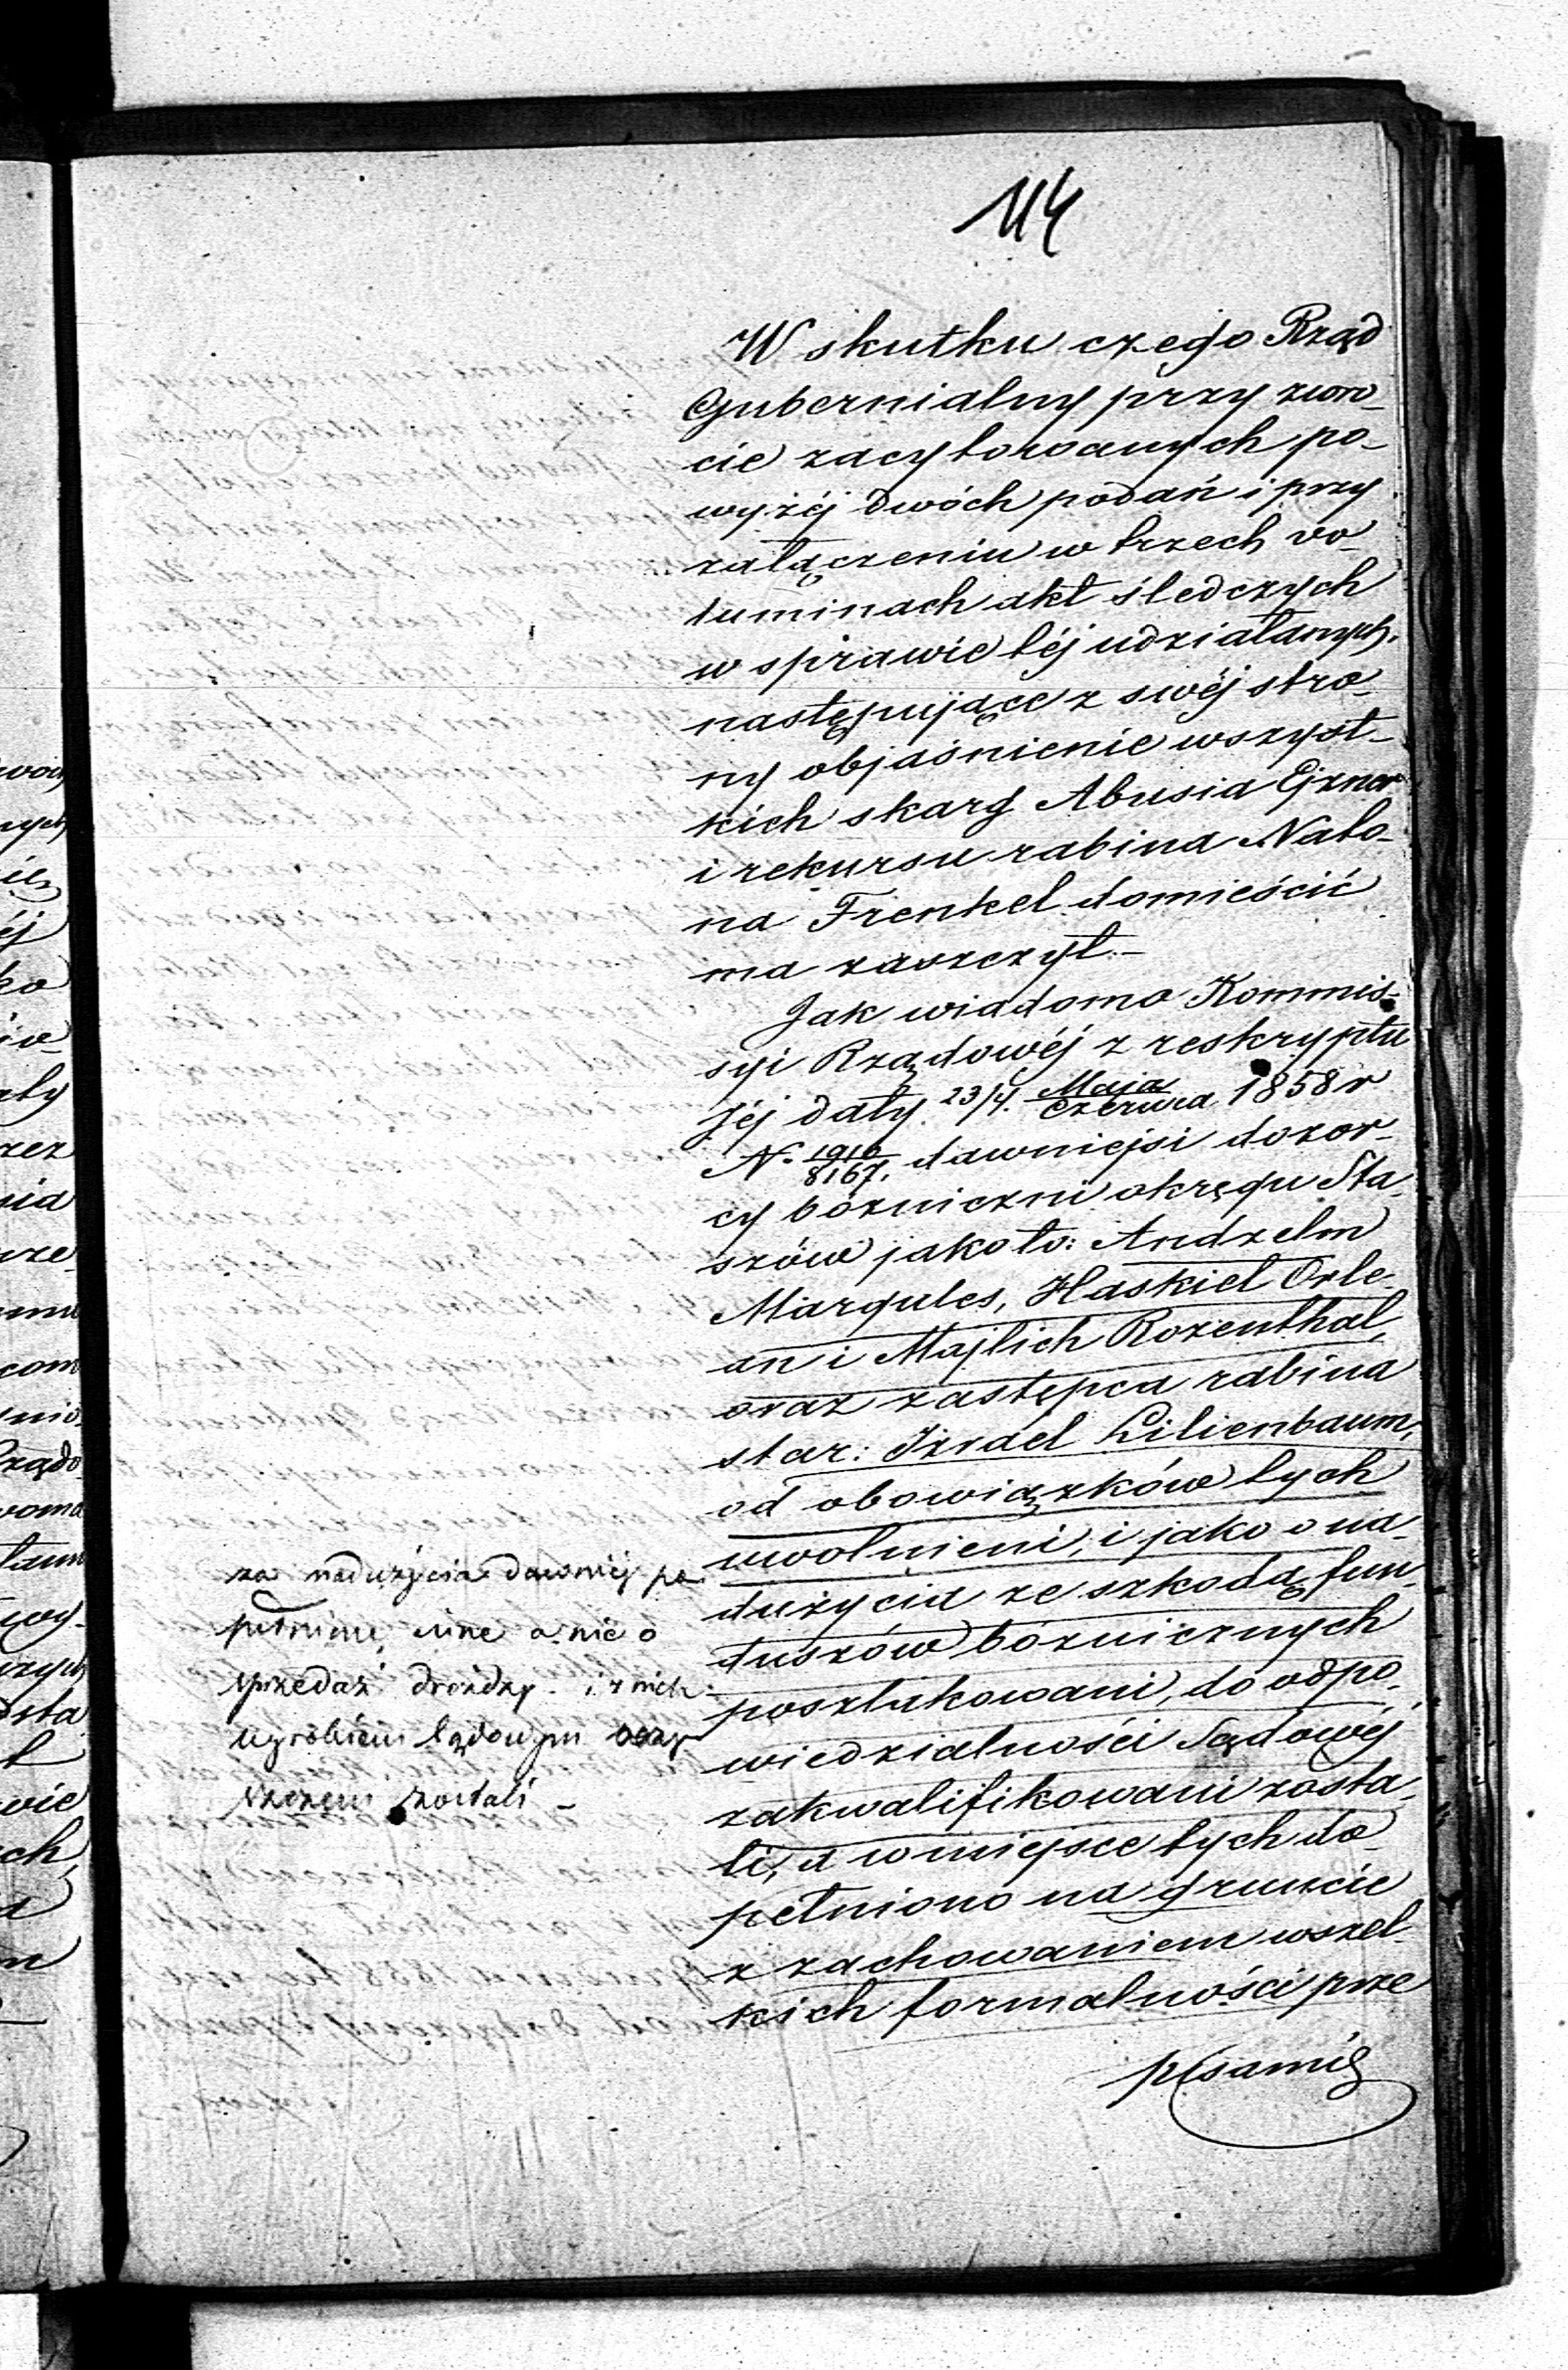 114
W skutku czego Rząd
Gubernialny przy zwro-
cie zacytowanych po-
wyżéj dwóch podań i przy
załączeniu w trzech vo-
luminach akt śledczych
w sprawie téj udziałanych,
następujące z swéj stro-
ny objaśnienie wszyst-
kich skarg Abusia Ejzner
i rekursu rabina Nato-
na Frenkel domieścić
ma zaszczyt. -
Jak wiadomo Kommis-
syi Rządowéj z reskryptu
Jéj daty 23/4. Maja/Czerwca 1858 r
N. 1916/8167. dawniejsi dozor-
cy bóżniczni okręgu Sta-
szów jakoto: Andzelm
Margules, Haskiel Orle-
an i Majlich Rozenthal,
oraz zastępca rabina
star: Izrael Lilienbaum,
od obowiązków tych
uwolnieni, i jako o na-
dużycia ze szkodą fun-
duszów bóżnicznych
poszlakowani, do odpo-
wiedzialności Sądowéj
zakwalifikowani zosta-
li, a w miejsce tych do-
pełniono na gruncie
z zachowaniem wszel-
kich formalności prze
pisamiś
za nadużycia dawniéj po-
pełnione, inne a nie o
sprzedaż drożdży i z nich
wyrokiem Sądowym oczy-
szczeni zostali -